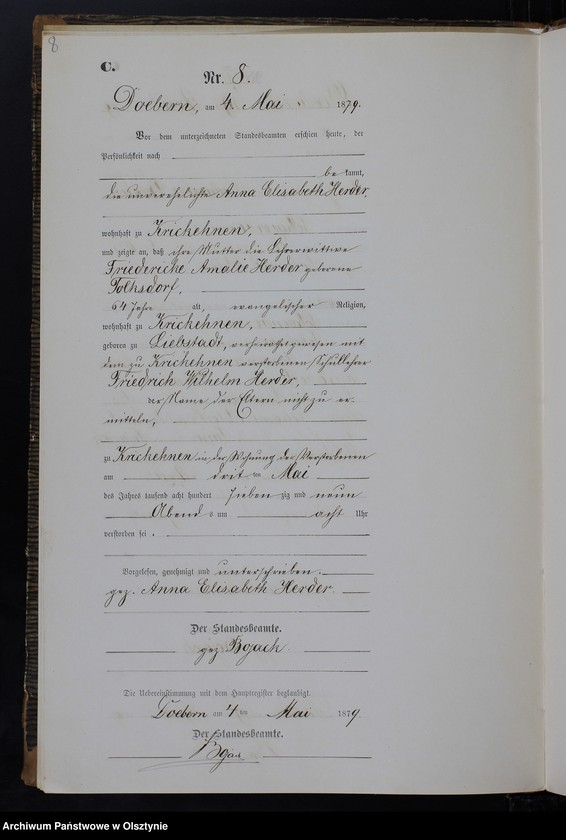 8
C.
Nr. 8.
Doebern, am 4. Mai 1879.
Vor dem unterzeichneten Standesbeamten erschien heute, der
Persönlichkeit nach
be kannt,
die unverehelichte Anna Elisabeth Herder,
wohnhaft zu Krickehnen,
und zeigte an, daß ihre Mutter die Lehrerwittwe
Friedericke Amalie Herder geborene
Folksdorf,
64 Jahre alt, evangelischer Religion,
wohnhaft zu Krickehnen,
geboren zu Liebstadt, verheirathet gewesen mit
dem zu Krickehnen verstorbenen Schullehrer
Friedrich Wilhelm Herder,
der Name der Eltern nicht zu er-
mitteln,
zu Krickehnen in der Wohnung der Verstorbenen
am drit ten Mai
des Jahres tausend acht hundert sieben zig und neun
Abend s um acht Uhr
verstorben sei.
Vorgelesen, genehmigt und unterschrieben.
gez. Anna Elisabeth Herder.
Der Standesbeamte.
gez
Die Uebereinstimmung mit dem Hauptregister beglaubigt.
Doebern am 4 ten Mai 1879
Der Standesbeamte.
Archiwum Państwowe w Olsztynie